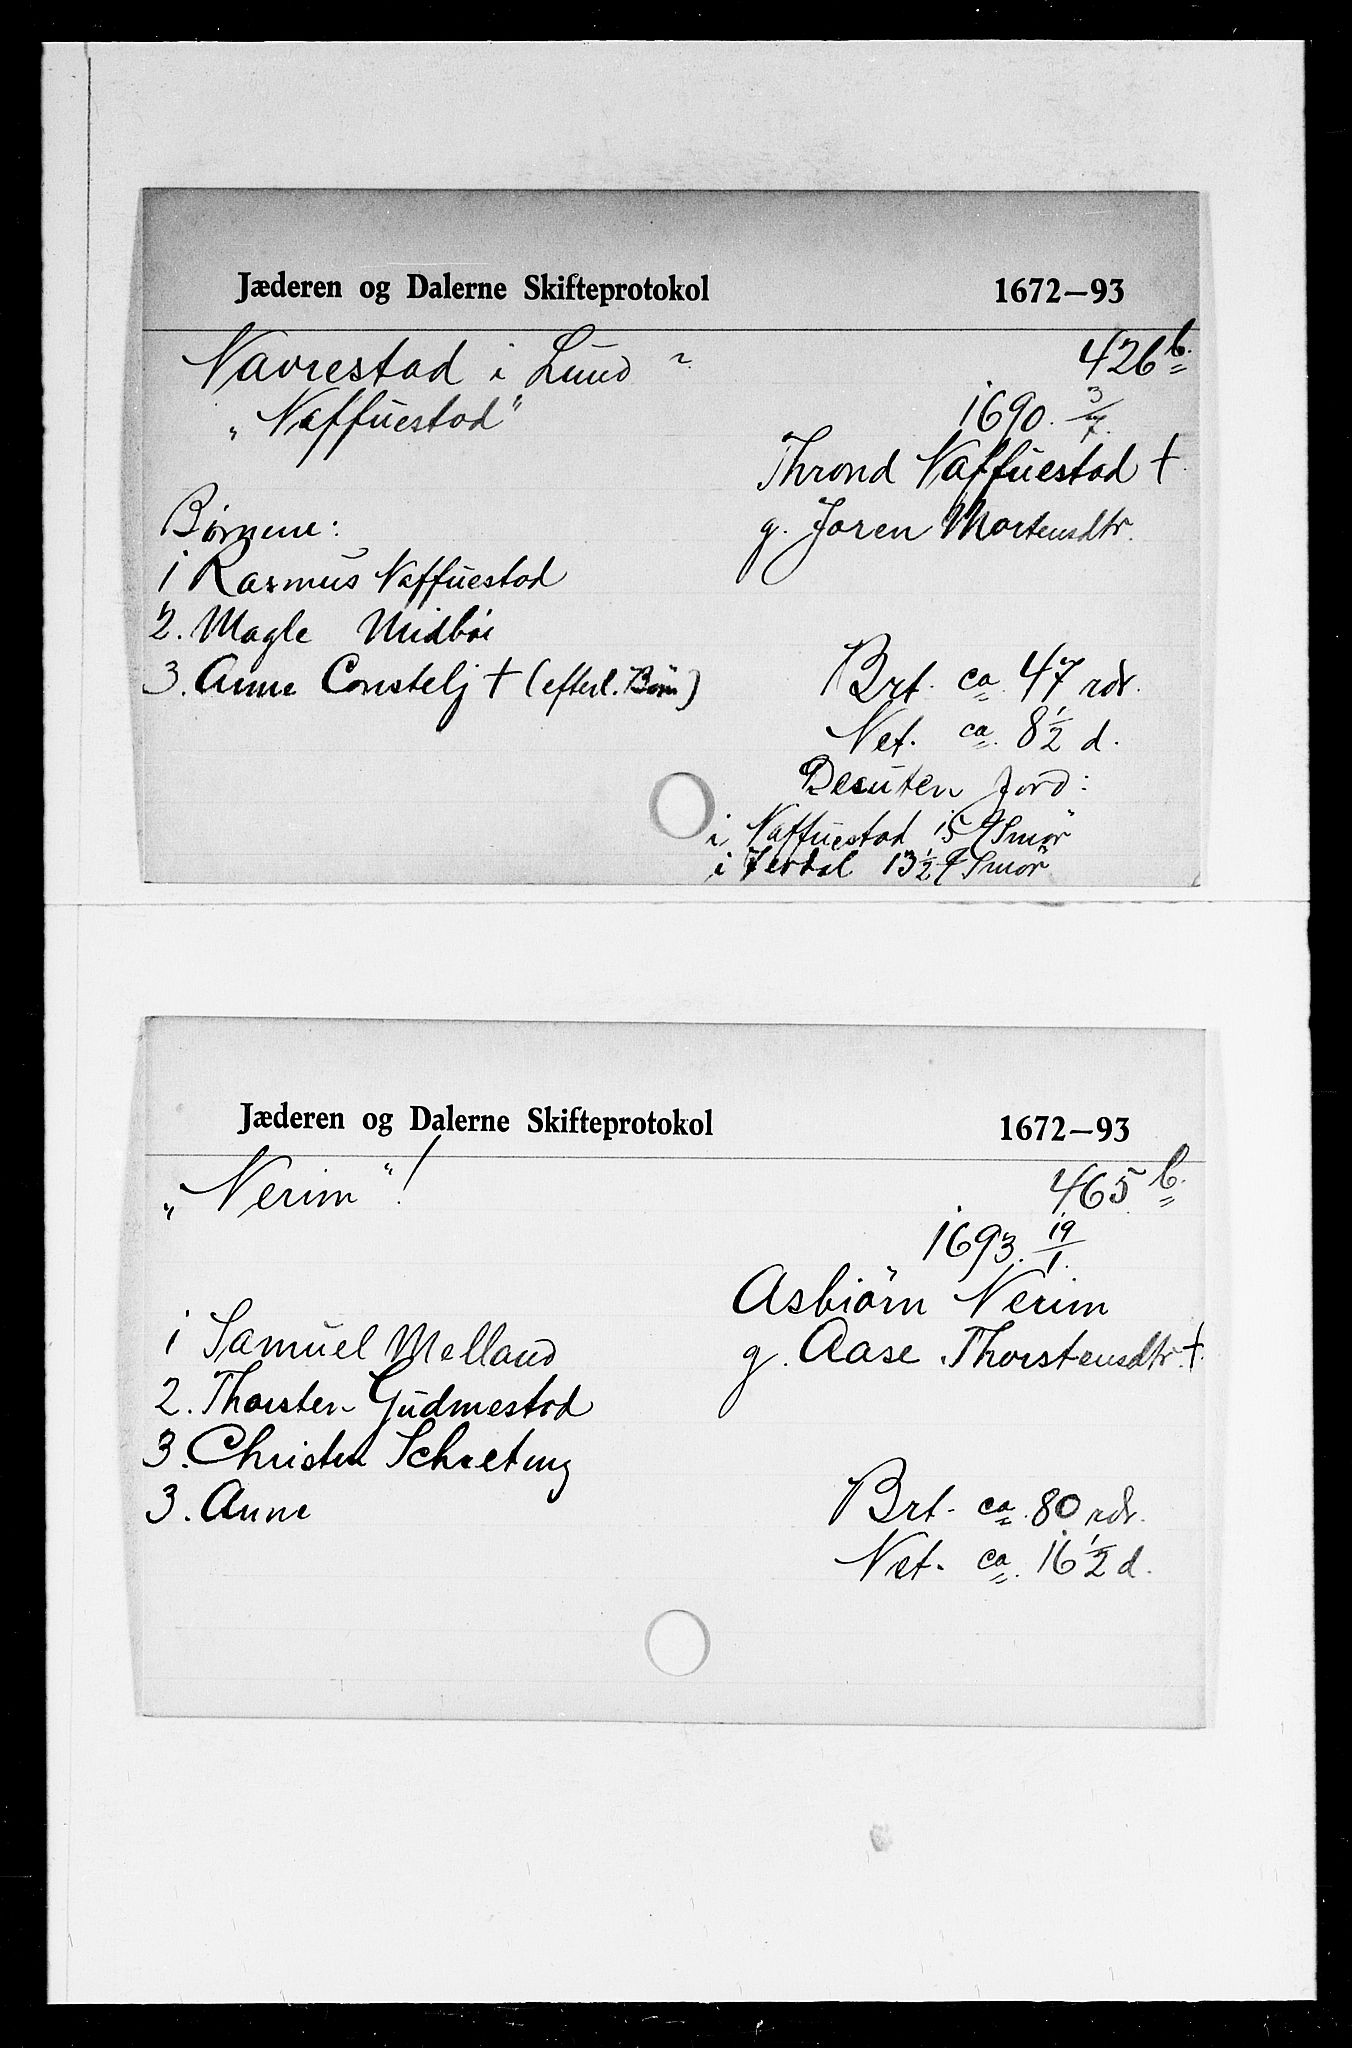 Jæderen og Dalerne Skifteprotokol 1672–93
Navrestad i Lund ? 426 b.
„Naffuestad" 1690. 3/7.
Thrond Naffuestad †.
Børnene: g. Joren Mortensdtr.
1 Rasmus Naffuestad
2. Magle Midbøe
3. Anne Constelj † (efterl. Børn) Brt. ca. 47 rdr.
Net. ca. 8 1/2 d.
Desuten Jord:
i Naffuestad 15 Smør
i 13 1/2 Smør
Jæderen og Dalerne Skifteprotokol 1672–93
„Nerim"! 465 b.
1693. 19/1.
Asbiørn Nerim
1 Samuel Melland g. Aase Thorstensdtr. †.
2. Thorsten Gudmestad
3. Christen Schreting
3. Anne Brt. ca. 80 rdr.
Net. ca. 16 1/2 d.